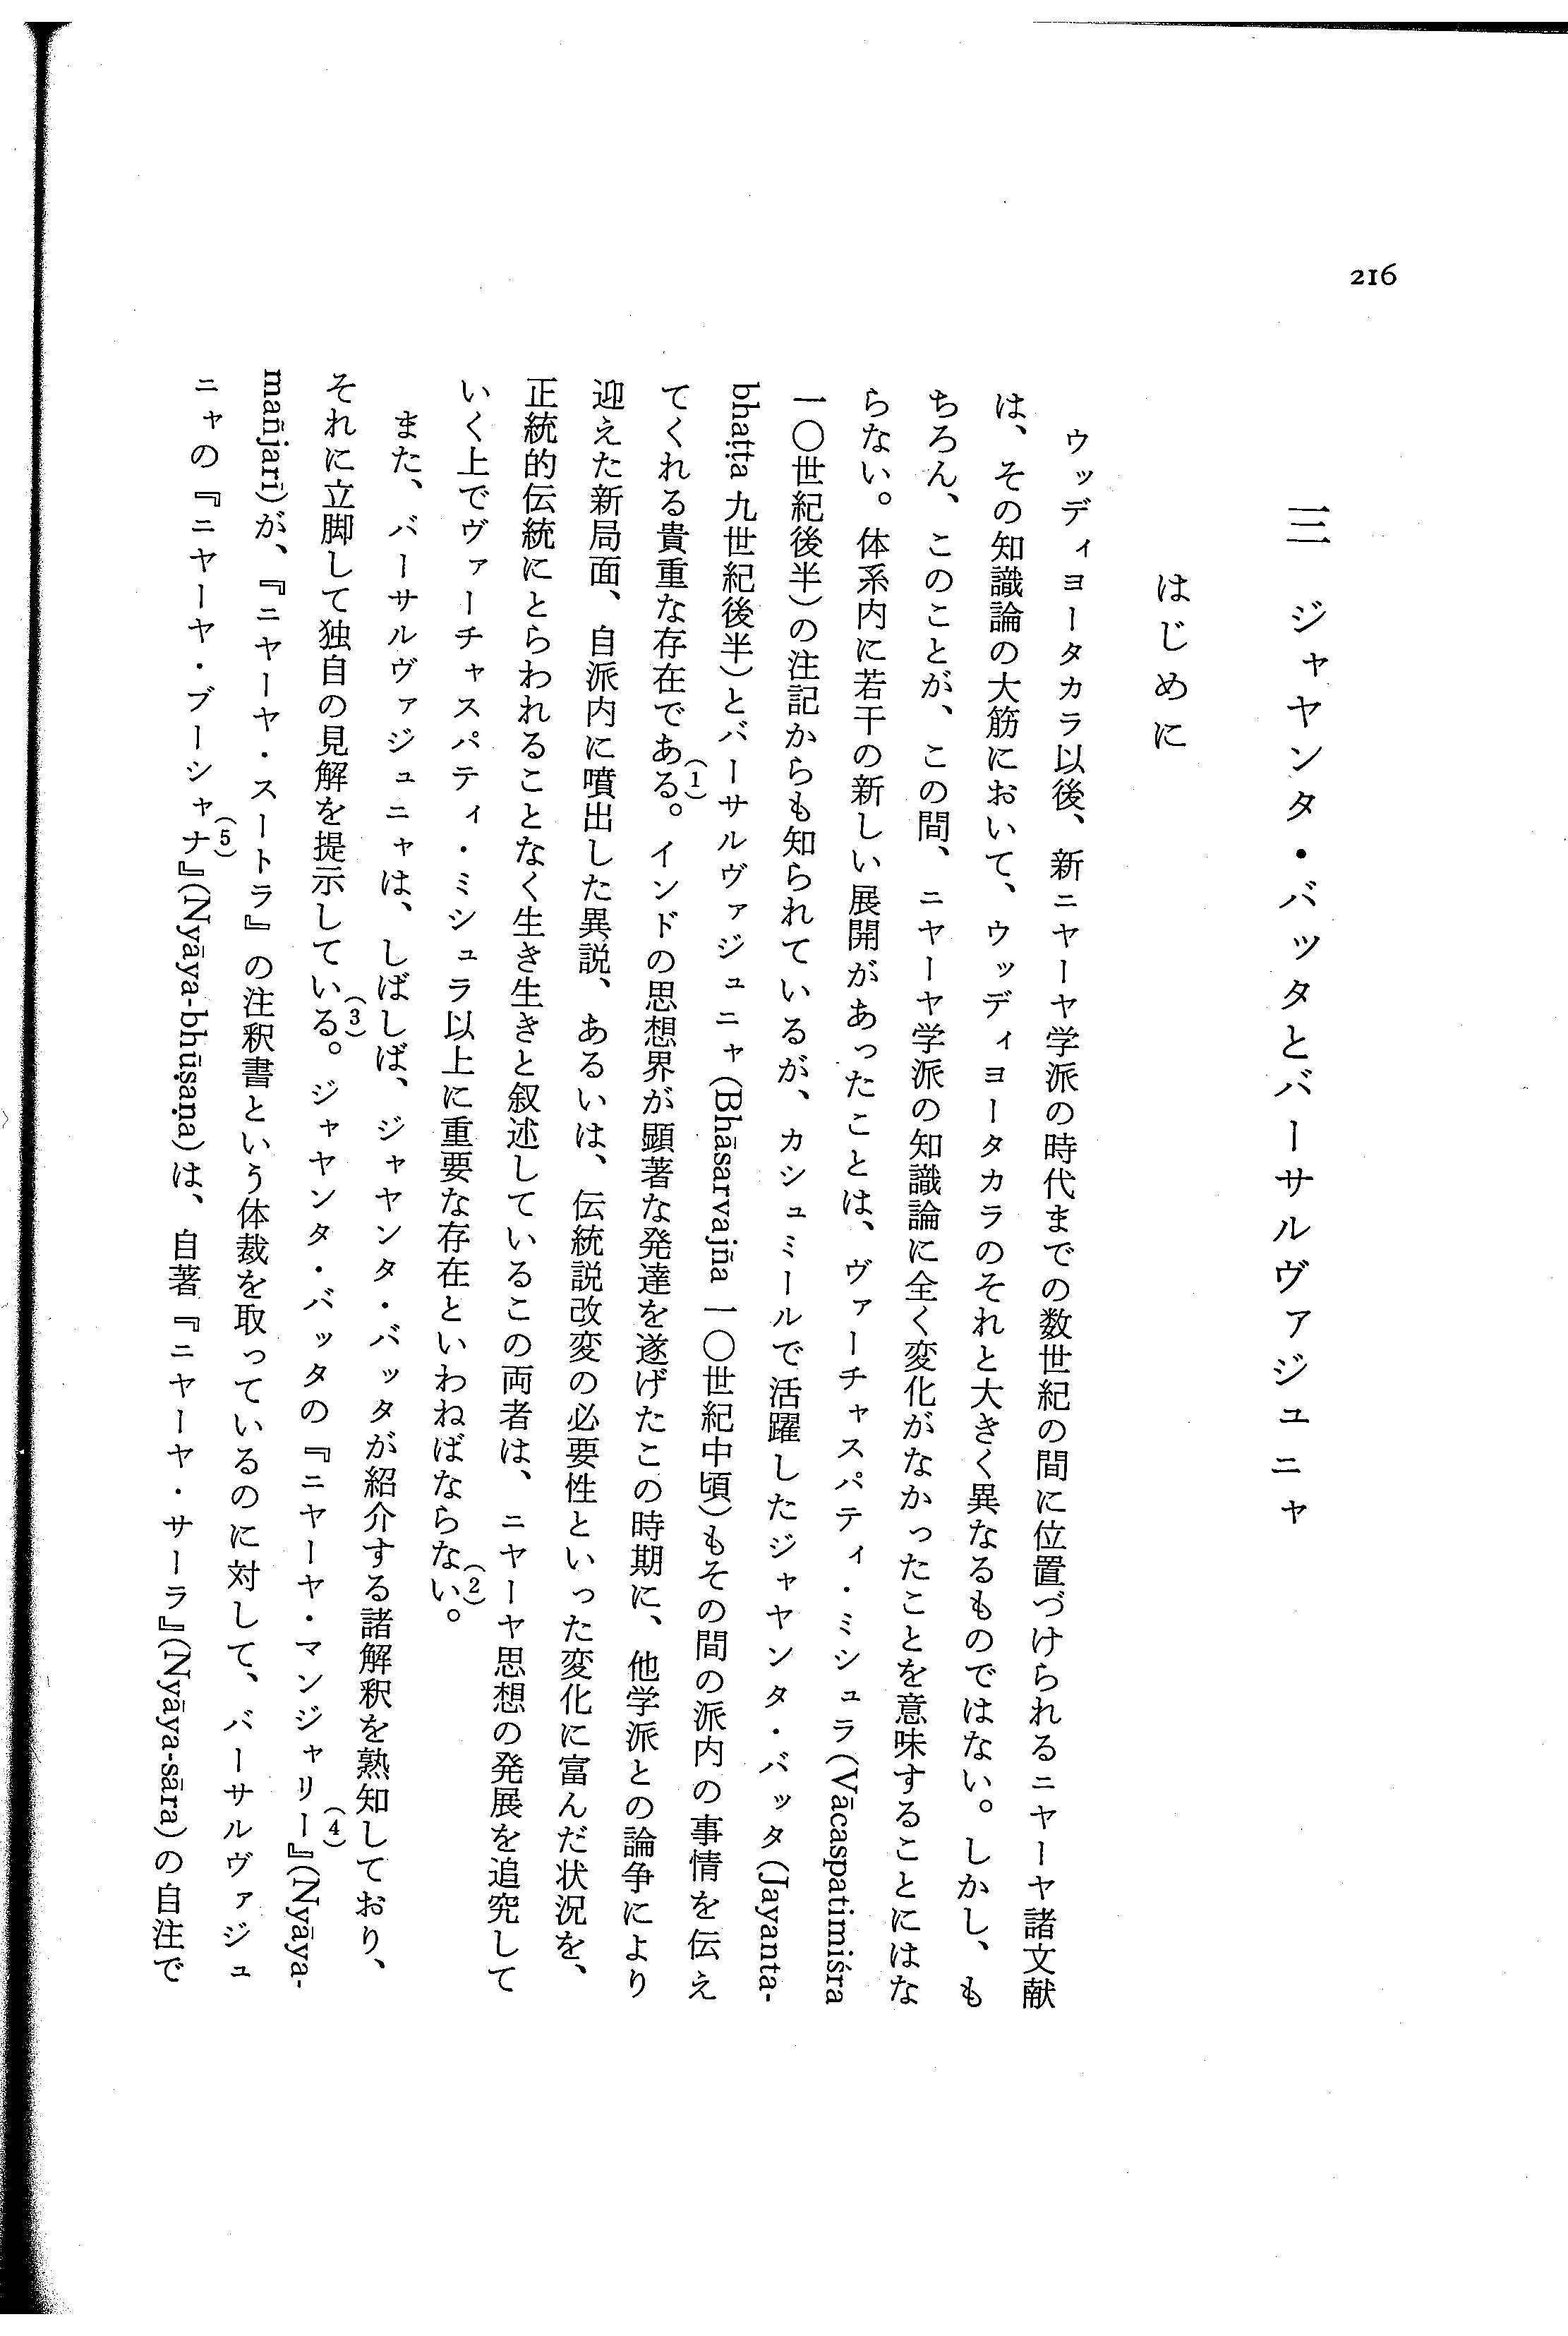 216
三　ジャヤンタ・バッタとバーサルヴァジュニャ
はじめに
ウッディヨータカラ以後、新ニヤーヤ学派の時代までの数世紀の間に位置づけられるニヤーヤ諸文献
は、その知識論の大筋において、ウッディヨータカラのそれと大きく異なるものではない。しかし、も
ちろん、このことが、この間、ニヤーヤ学派の知識論に全く変化がなかったことを意味することにはな
らない。体系内に若干の新しい展開があったことは、ヴァーチャスパティ・ミシュラ(Vācaspatimiśra
一〇世紀後半)の注記からも知られているが、カシュミールで活躍したジャヤンタ・バッタ(Jayanta-
bhaṭṭa 九世紀後半)とバーサルヴァジュニャ(Bhāsarvajña 一〇世紀中頃)もその間の派内の事情を伝え
てくれる貴重な存在である(1)。インドの思想界が顕著な発達を遂げたこの時期に、他学派との論争により
迎えた新局面、自派内に噴出した異説、あるいは、伝統説改変の必要性といった変化に富んだ状況を、
正統的伝統にとらわれることなく生き生きと叙述しているこの両者は、ニヤーヤ思想の発展を追究して
いく上でヴァーチャスパティ・ミシュラ以上に重要な存在といわねばならない(2)。
また、バーサルヴァジュニャは、しばしば、ジャヤンタ・バッタが紹介する諸解釈を熟知しており、
それに立脚して独自の見解を提示している(3)。ジャヤンタ・バッタの『ニヤーヤ・マンジャリー(4)』(Nyāya-
mañjarī)が、『ニヤーヤ・スートラ』の注釈書という体裁を取っているのに対して、バーサルヴァジュ
ニャの『ニヤーヤ・ブーシャナ(5)』(Nyāya-bhūṣaṇa)は、自著『ニヤーヤ・サーラ』(Nyāya-sāra)の自注で